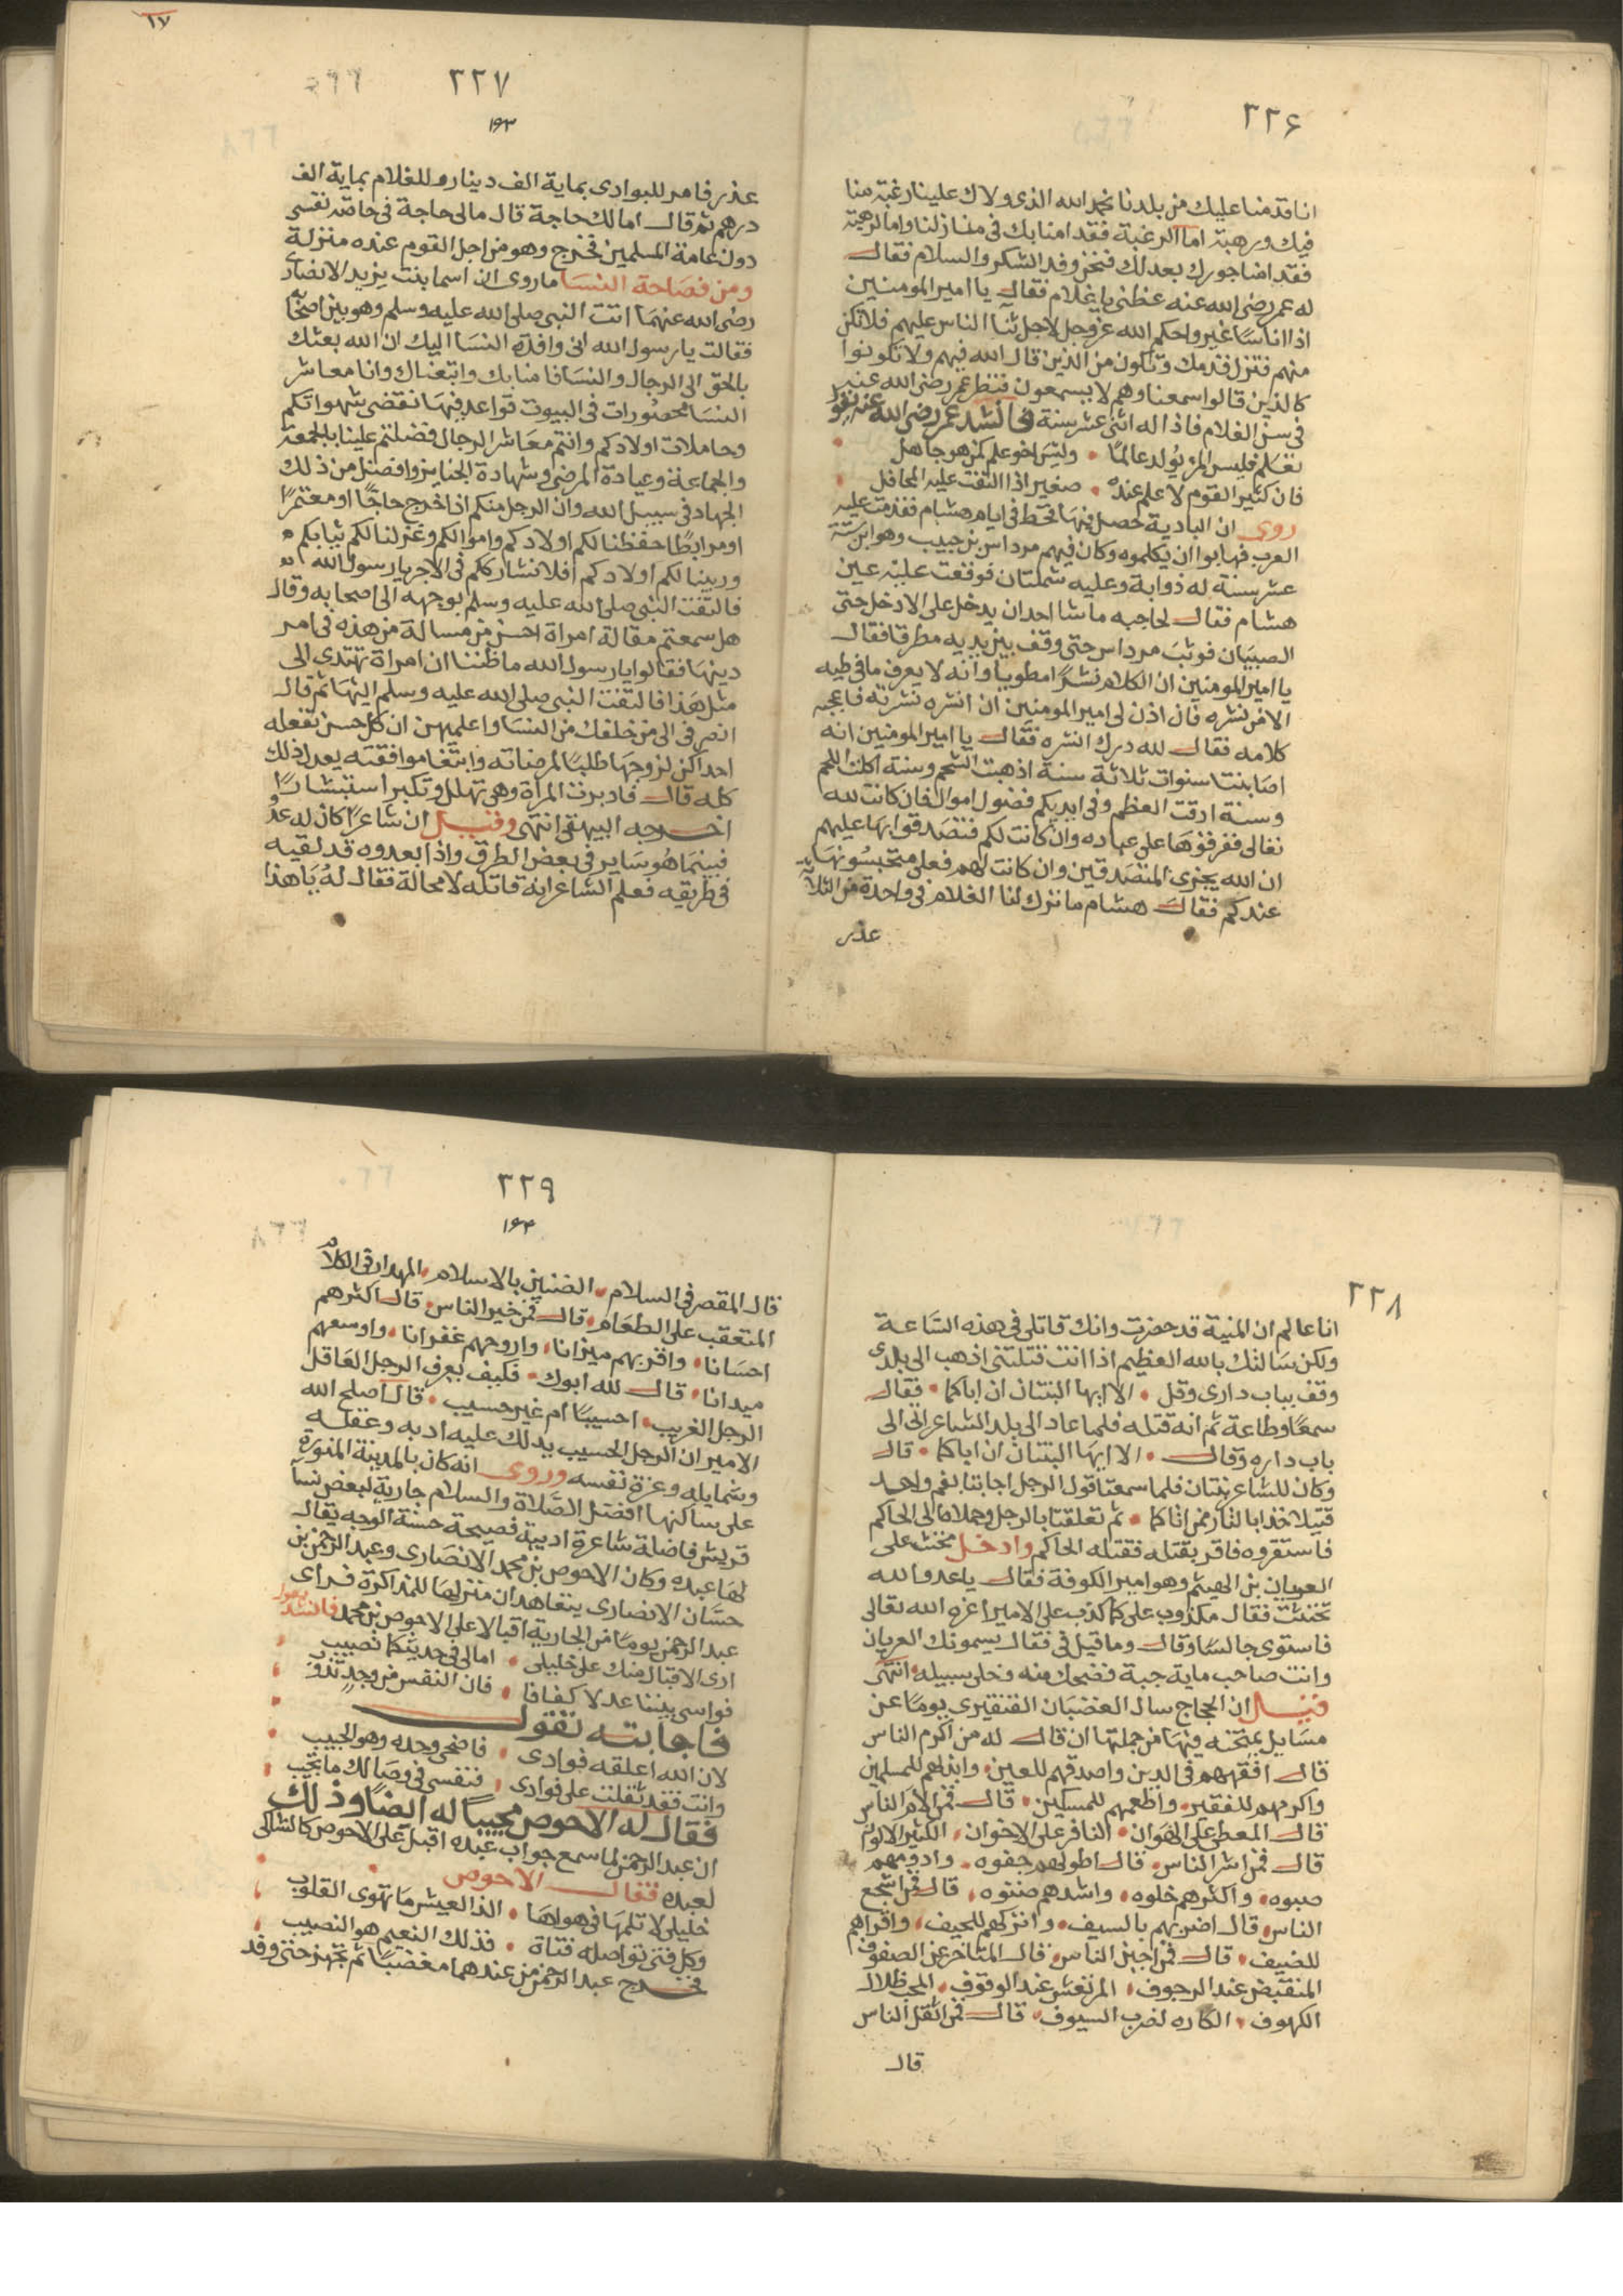 ٢٢٦
انا قدمنا عليك من بلدنا نحمد الله الذي ولاك علينا رغبة منا
فيك ورهبة اما الرغبة فقد امنا بك في منازلنا واما الرهبة
فقد امنا جورك بعدلك فنحن وفد الشكر والسلام فقال
له عمر رضى الله عنه عظنى يا غلام فقال يا امير المومنين
اذا اناسا غير واحكم الله عز وجل لاجل ثنا الناس عليهم فلا تكن
منهم فتنزل قدمك وتكون من الذين قال الله فيهم ولا تكونوا
كالذين قالوا سمعنا وهم لا يسمعون فنظر عمر رضى الله عنه
في سن الغلام فاذا له اثنى عشر سنة فانشد عمر رضى الله عنه يقول
تعلم فليس المرء يولد عالما • وليس اخو علم كمن هو جاهل
فان كثير القوم لا علم عنده • صغير اذا التفت عليه المحافل
روى ان البادية حصل فيها قحط في ايام هشام فقدمت عليه
العرب فهابوا ان يكلموه وكان فيهم مرداس بن حبيب وهو ابن ستة
عشر سنة له ذوابة وعليه شملتان فوقعت عليه عين
هشام فقال لحاجبه ما شا احد ان يدخل على الا دخل حتى
الصبيان فوثب مرداس حتى وقف بين يديه مطرقا فقال
يا امير المومنين ان الكلام نشرا مطويا وانه لا يعرف ما في طيه
الا من نشره فان اذن لي امير المومنين ان انشره نشرته فاعجبه
كلامه فقال لله درك انشره فقال يا امير المومنين انه
اصابتنا سنوات ثلاثة سنة اذهبت الشحم وسنة اكلت اللحم
وسنة ادقت العظم وفي ايديكم فضول اموال فان كانت لله
تعالى ففرقوها على عباده وان كانت لكم فتصدقوا بها عليهم
ان الله يجزى المتصدقين وان كانت لهم فعلى م تحبسونها
عندكم فقال هشام ما ترك لنا الغلام في واحدة من الثلاثة
عذر
١٧
٢٢٧
١٩٣
عذر فامر للبوادى بماية الف دينار وللغلام بماية الف
درهم ثم قال امالك حاجة قال مالى حاجة في خاصة نفسى
دون عامة المسلمين فخرج وهو من اجل القوم عنده منزلة
ومن فصاحة النسا ما روى ان اسما بنت يزيد الانصارى
رضى الله عنهما اتت النبي صلى الله عليه وسلم وهو بين اصحابه
فقالت يا رسول الله انى وافدة النسا اليك ان الله بعثك
بالحق الى الرجال والنسا فامنا بك واتبعناك وانا معاشر
النسا محصورات في البيوت قواعد فيها نقضى شهواتكم
وحاملات اولادكم وانتم معاشر الرجال فضلتم علينا بالجمعة
والجماعة وعيادة المرضى وشهادة الجنايز وافضل من ذلك
الجهاد في سبيل الله وان الرجل منكم اذا خرج حاجا او معتمرا
او مرابطا حفظنا لكم اولادكم واموالكم وغزلنا لكم ثيابكم
وربينا لكم اولادكم افلا نشارككم في الاجر يا رسول الله
فالتفت النبي صلى الله عليه وسلم بوجهه الى اصحابه وقال
هل سمعتم مقالة امراة احسن من مسالة من هذه في امر
دينها فقالوا يا رسول الله ما ظننا ان امراة تهتدى الى
مثل هذا فالتفت النبي صلى الله عليه وسلم اليها ثم قال
انصرفى الى من خلفك من النسا واعلميهن ان كل حسن تفعله
احداكن لزوجها طلبا لمرضاته وابتغا موافقته يعدل ذلك
كله قال فادبرت المراة وهي تهلل وتكبر استبشارا
اخرجه البيهقى انتهى وقيل ان شاعرا كان له عدو
فبينما هو ساير في بعض الطرق واذا بعدوه قد لقيه
في طريقه فعلم الشاعر انه قاتله لا محالة فقال له يا هذا
٢٢٨
انا عالم ان المنية قد حضرت وانك قاتلى في هذه الساعة
ولكن سالتك بالله العظيم اذا انت قتلتنى اذهب الى بلدى
وقف بباب دارى وقل • الا ايها البنتان ان اباكما • فقال
سمعا وطاعة ثم انه قتله فلما عاد الى بلد الشاعر اتى الى
باب داره وقال • الا ايها البنتان ان اباكما • قال
وكان للشاعر بنتان فلما سمعتا قول الرجل اجابتا بفم واحد
قتيلا خذا بالثار ممن اتاكما • ثم تعلقتا بالرجل وحملاه الى الحاكم
فاستقروه فاقر بقتله فقتله الحاكم وادخل مخنث على
العريان بن الهيثم وهو امير الكوفة فقال يا عدو الله
تخنثت فقال مكذوب على كما كذب على الامير اعزه الله تعالى
فاستوى جالسا وقال وما قيل في فقال يسمونك العريان
وانت صاحب ماية جبة فضحك منه وخلى سبيله انتهى
قيل ان الحجاج سال الغضبان القنقيرى يوما عن
مسايل يمتحنه فيها من جملتها ان قال له من اكرم الناس
قال افقههم في الدين واصدقهم لليمين • وابذلهم للمسلمين
واكرمهم للفقير • واطعمهم للمسكين • قال فمن الام الناس
قال المعطى على الهوان • النافر على الاخوان • الكثير الالوان
قال فمن اشر الناس • قال اطولهم جفوه • وادومهم
صبوه • واكثرهم خلوه • واشدهم صنتوه • قال فمن اشجع
الناس • قال اضربهم بالسيف • واتركهم للحيف • واقراهم
للضيف • قال فمن اجبن الناس • قال المتاخر عن الصفوف
المنقبض عند الرجوف • المرتعش عند الوقوف • المحب ظلال
الكهوف • الكاره لضرب السيوف • قال فمن اثقل الناس
قال
٢٢٩
١٩٤
قال المقصر في السلام • الضنين بالاسلام • المهدار في الكلام
المتعقب على الطعام • قال فمن خير الناس • قال اكثرهم
احسانا • واقربهم ميزانا • واروحهم غفرانا • واوسعهم
ميدانا • قال لله ابوك • فكيف يعرف الرجل العاقل
الرجل الغريب • احسيبا ام غير حسيب • قال اصلح الله
الامير ان الرجل الحسيب يدلك عليه ادبه وعقله
وشمايله وعزة نفسه وروى انه كان بالمدينة المنورة
على ساكنها افضل الصلاة والسلام جارية لبعض نسا
قريش فاضلة شاعرة اديبة فصيحة حسنة الوجه يقال
لها عبده وكان الاحوص بن محمد الانصارى وعبد الرحمن بن
حسان الانصارى يتعاهدان منزلها للمذاكرة فراى
عبد الرحمن يوما من الجارية اقبالا على الاحوص بن محمد فانشد يقول
ارى الاقبال منك على خليلى • امالى في حديثكما نصيب
فواسى بيننا عدلا كفافا • فان النفس من وجد تذوب
فاجابته تقول
لان الله اعلقه فوادى • فاضحى وحده وهو الحبيب
وانت فقد ثقلت على فوادى • فنفسى في وصالك ما تجيب
فقال له الاحوص مجيبا له ايضا وذلك
ان عبد الرحمن لما سمع جواب عبده اقبل على الاحوص كالشاكى
لعبده فقال الاحوص
خليلى لا تلمها في هواها • الذ العيش ما تهوى القلوب
وكل فتى تواصله فتاة • فذلك النعيم هو النصيب
فخرج عبد الرحمن من عندهما مغضبا ثم تجهز حتى وفد